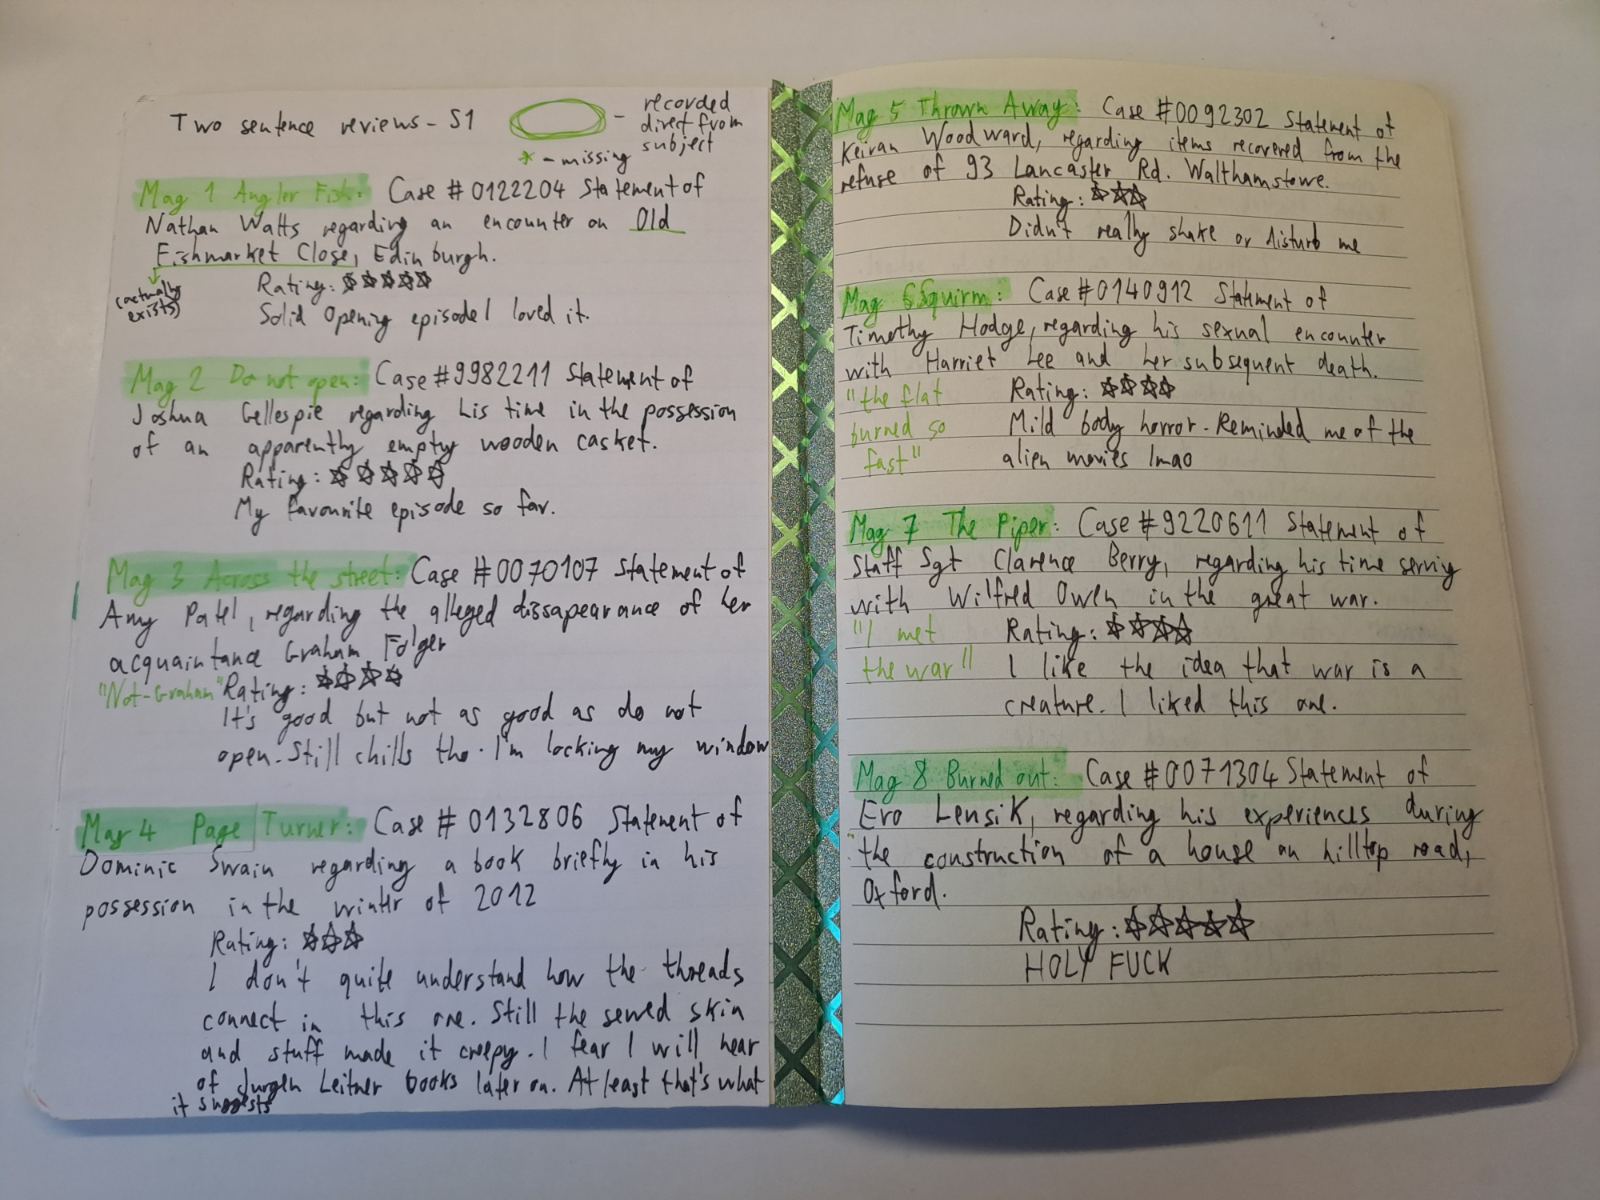 Two sentence reviews - S1
- recorded
direct from
subject
* - missing
Mag 1 Angler Fish: Case #0122204 Statement of
Nathan Watts regarding an encounter on Old
Fishmarket Close, Edinburgh.
(actually
exists)
Rating: ☆☆☆☆☆
Solid Opening episode I loved it.
Mag 2 Do not open: Case #9982211 Statement of
Joshua Gellespie regarding his time in the possession
of an apparently empty wooden casket.
Rating: ☆☆☆☆☆
My favourite episode so far.
Mag 3 Across the street: Case #0070107 Statement of
Amy Patel, regarding the alleged dissapearance of her
acquaintance Graham Folger
"Not-Graham" Rating: ☆☆☆☆
It's good but not as good as do not
open. Still chills tho. I'm locking my window
Mag 4 Page Turner: Case #0132806 Statement of
Dominic Swain regarding a book briefly in his
possession in the winter of 2012
Rating: ☆☆☆
I don't quite understand how the threads
connect in this one. Still the sewed skin
and stuff made it creepy. I fear I will hear
of Jurgen Leitner books later on. At least that's what
it suggests
Mag 5 Thrown Away: Case #0092302 Statement of
Keiran Woodward, regarding items recovered from the
refuse of 93 Lancaster Rd. Walthamstowe.
Rating: ☆☆☆
Didn't really shake or disturb me
Mag 6 Squirm: Case #0140912 Statement of
Timothy Hodge, regarding his sexual encounter
with Harriet Lee and her subsequent death.
"the flat
burned so
fast"
Rating: ☆☆☆☆
Mild body horror. Reminded me of the
alien movies lmao
Mag 7 The Piper: Case #9220611 Statement of
Staff Sgt Clarence Berry, regarding his time serving
with Wilfred Owen in the great war.
"I met
the war"
Rating: ☆☆☆☆
I like the idea that war is a
creature. I liked this one.
Mag 8 Burned out: Case #0071304 Statement of
Ero Lensik, regarding his experiences during
the construction of a house on hilltop road,
Oxford.
Rating: ☆☆☆☆☆
HOLY FUCK